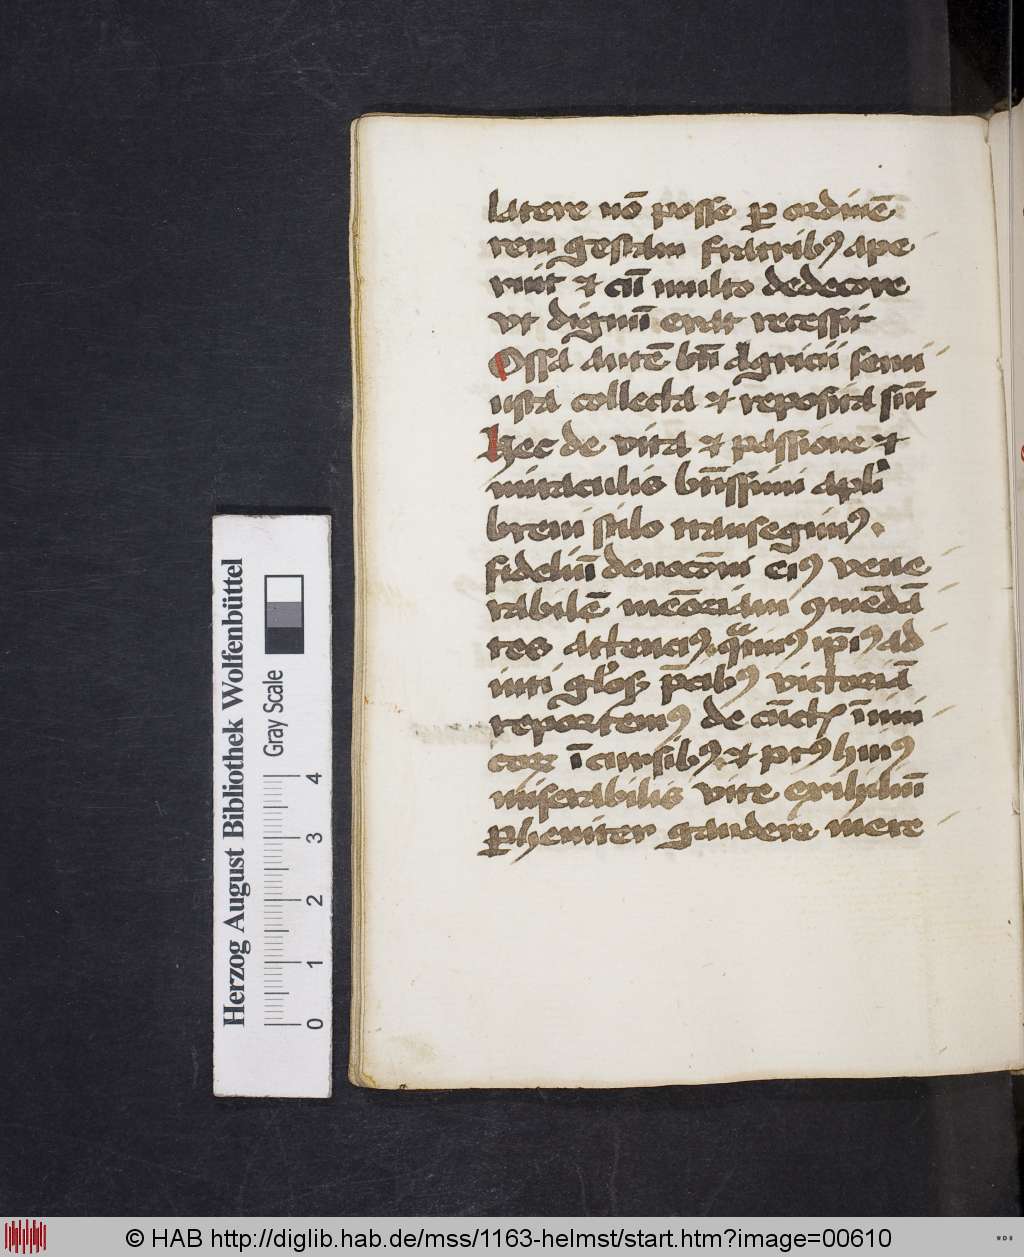 latere nō posse ꝑ ordinē
rem gestam fratribꝰ ape
ruit ⁊ cū multo dedecore
vt dignū erat recessit
Ossa autē bti̅ Agricii semi
usta collecta ⁊ reposita sūt
Hec de vita ⁊ passione ⁊
miraculis bti̅ssimi apli̅
breui stilo transeginꝰ
fideliū deuocōni eiꝰ vene
rabilē memōriam ꝯmēdā
tes attenciꝰ qͣtinꝰ ip̄iꝰ ad
iuti p̄cibꝰ victoriā
reportemꝰ de ī inimi
coꝝ īcursibꝰ ⁊ huiꝰ
miserabilis vite exihiliū
ꝑhenniter gaudere mere
Herzog August Bibliothek Wolfenbüttel
Gray Scale
0 1 2 3 4
© HAB http://diglib.hab.de/mss/1163-helmst/start.htm?image=00610